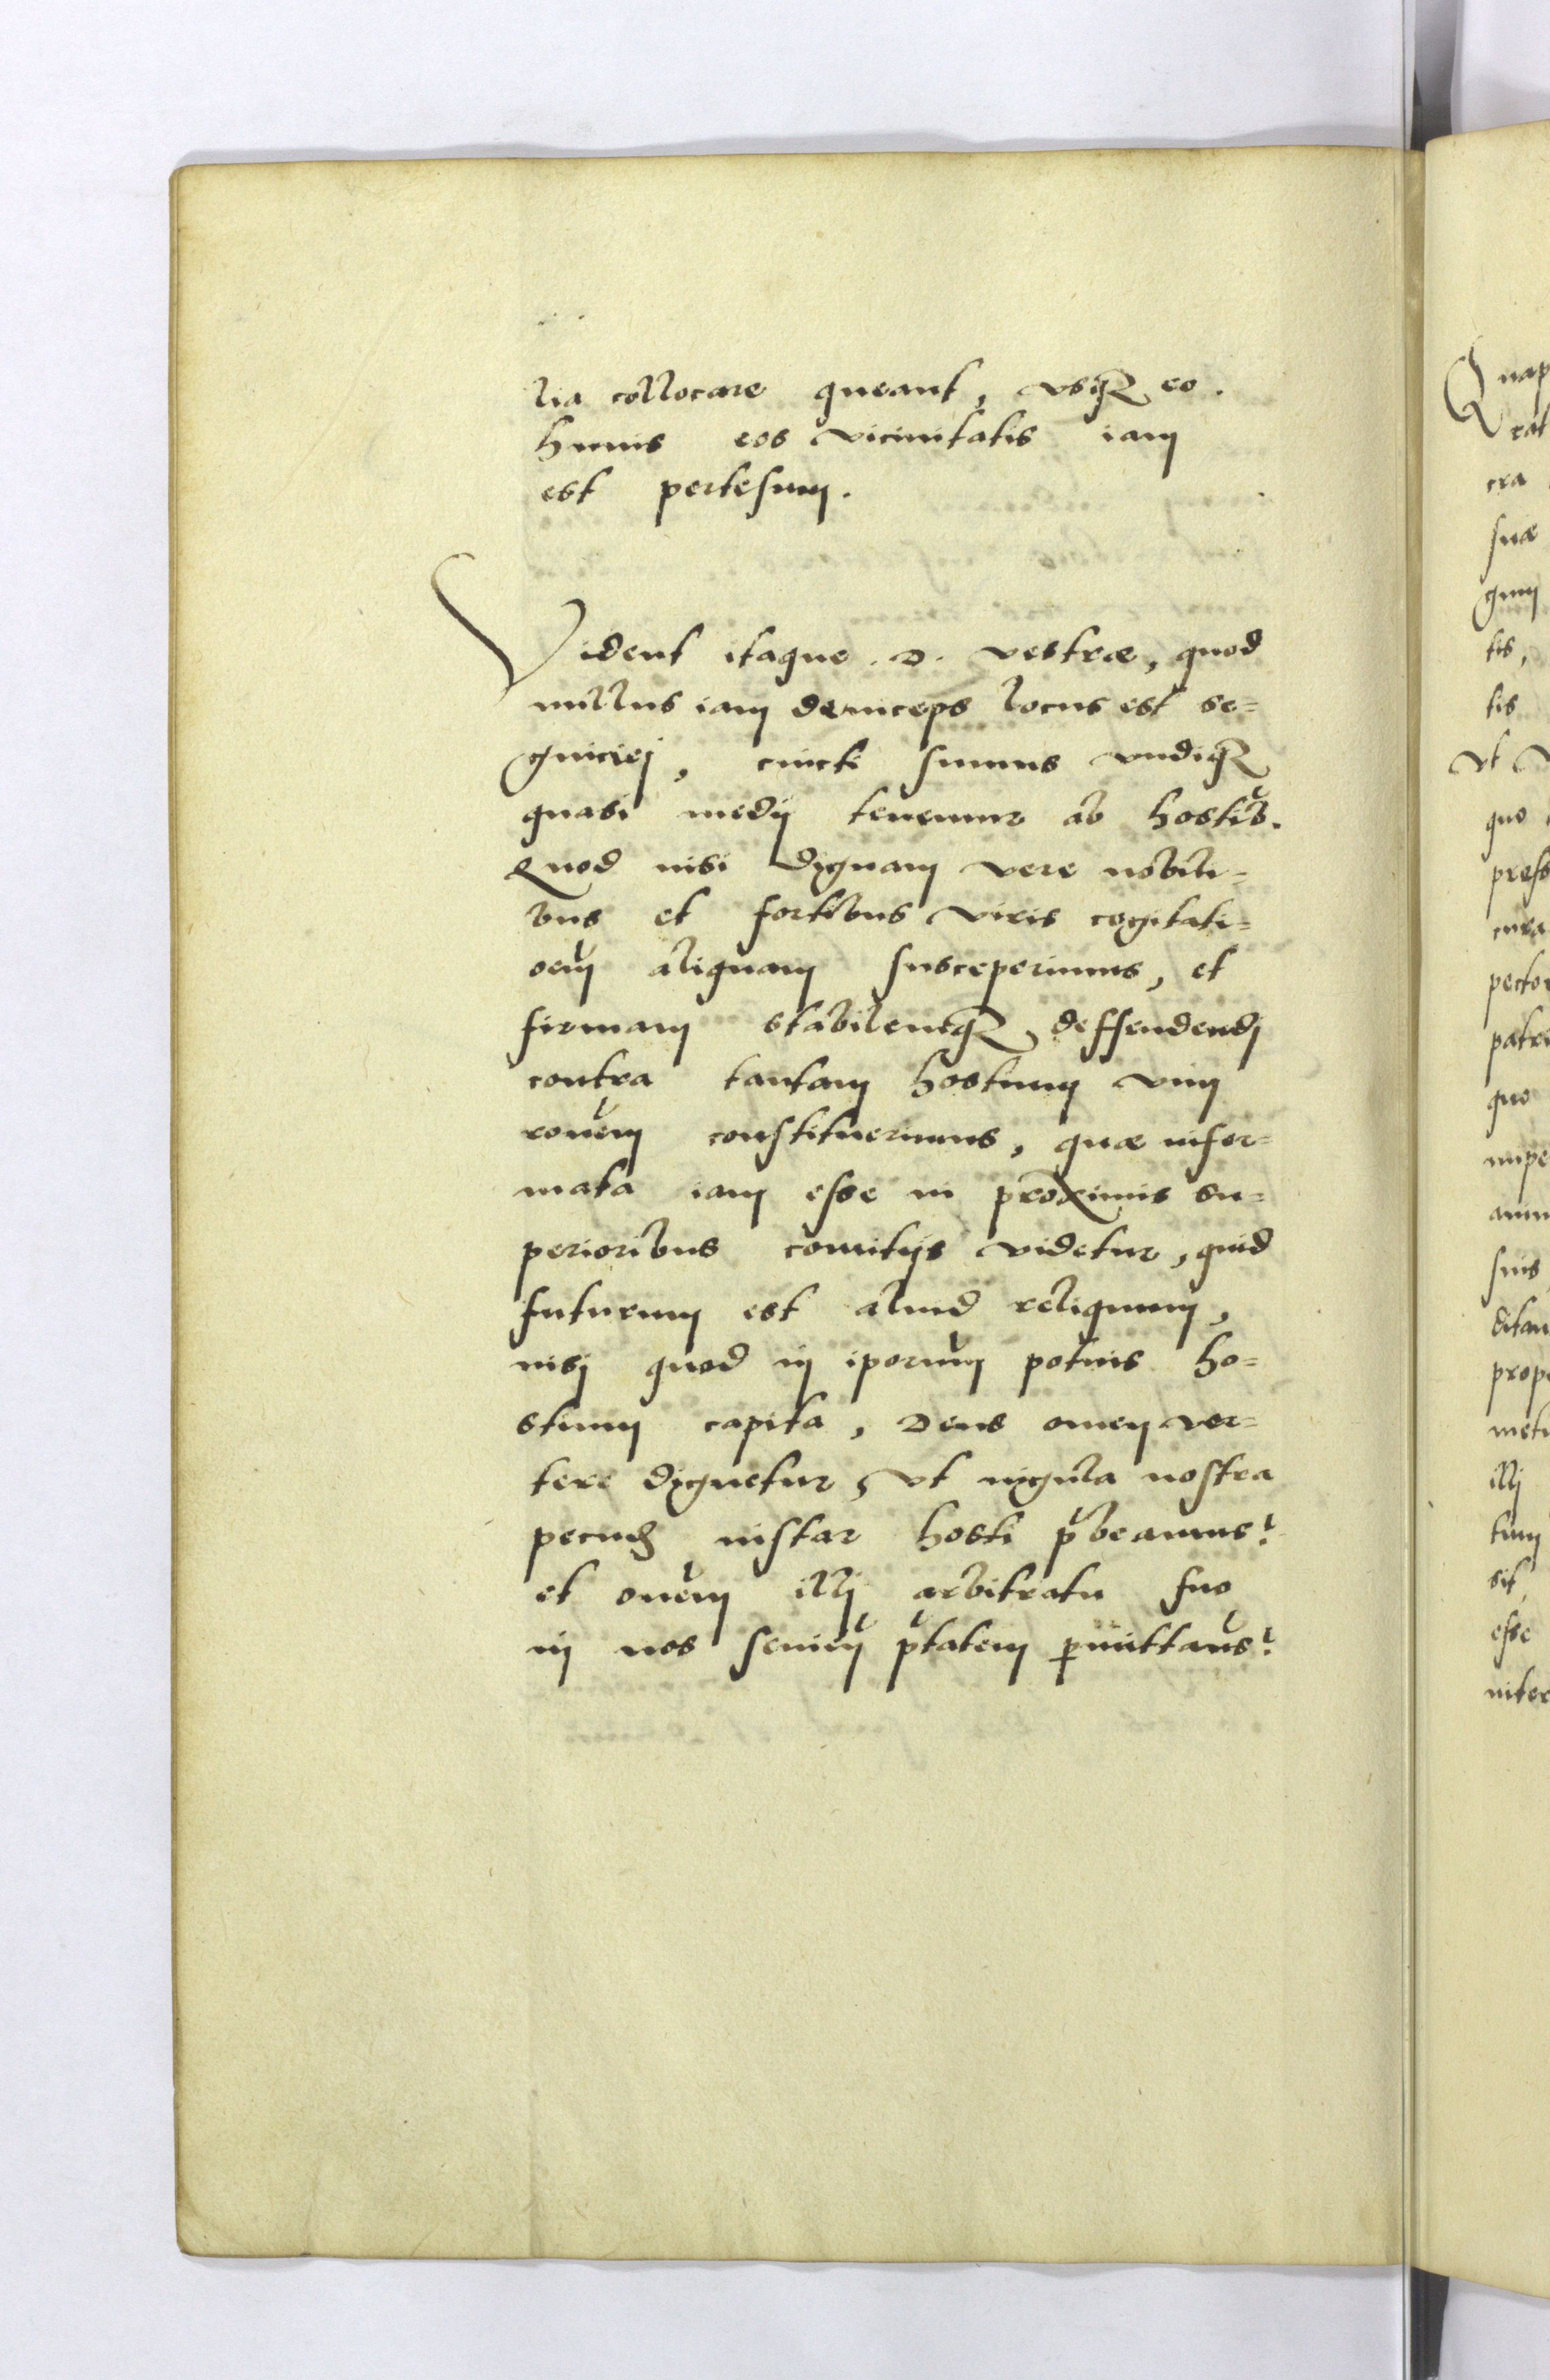 lia collocare queant, vsq₃ eo.
huius eos vicinitatis iam
est pertesum.
Vident itaque .D. vestræ, quod
nullus iam deinceps locus est se=
gniciej, cincti sumus vndiq₃
quasi medij tenemur ab hostib̃.
Quod nisi dignam vere nobili=
bus et fortibus viris cogitati=
oem̃ aliquam susceperimus, et
firmam stabilemq₃ deffendendj
contra tantam hostium vim
roñem constituerimus, quæ infor=
mata iam esse in proximis su=
perioribus comitijs videtur, quid
futurum est aliud reliquum,
nisj quod in ip̃orum potius ho=
stium capita, Deus omen ver=
tere dignetur, vt iugula nostra
pecud̃ instar hosti p̃beamus?
et om̃em illj arbitratu suo
in nos seuien̄ p̃tatem p̱mittam̃s?
Quap
rat
cra
suæ
gnum
tis,
tis
vt
quo
press
cura
pecto
patri
quo
nupe
anim
suis
ditan
prop
metu
illj
tum
sit
esse